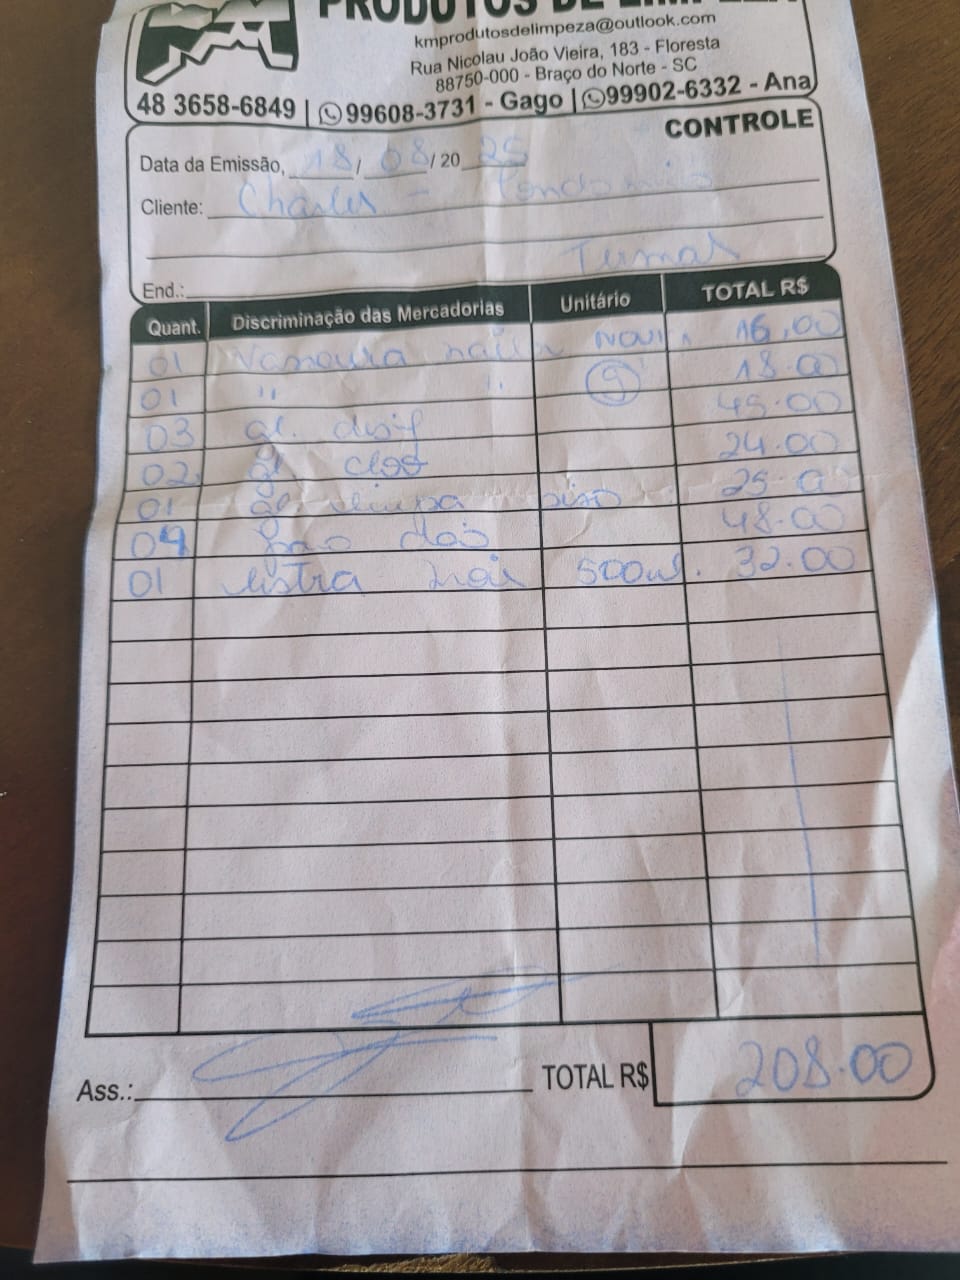 PRODUTOS DE LIMPEZA
kmprodutosdelimpeza@outlook.com
Rua Nicolau João Vieira, 183 - Floresta
88750-000 - Braço do Norte - SC
48 3658-6849 | 99608-3731 - Gago | 99902-6332 - Ana
CONTROLE
Data da Emissão, 18/08/2025
Cliente: Charles -
Termas
End.:
Quant. Discriminação das Mercadorias Unitário TOTAL R$
01 16,00
01 " " 9 18.00
03 gl. desif 45.00
02 gl 24.00
01 gl. limpa piso 25.00
04 48.00
01 lustra 500ml. 32.00
Ass.: TOTAL R$ 208.00